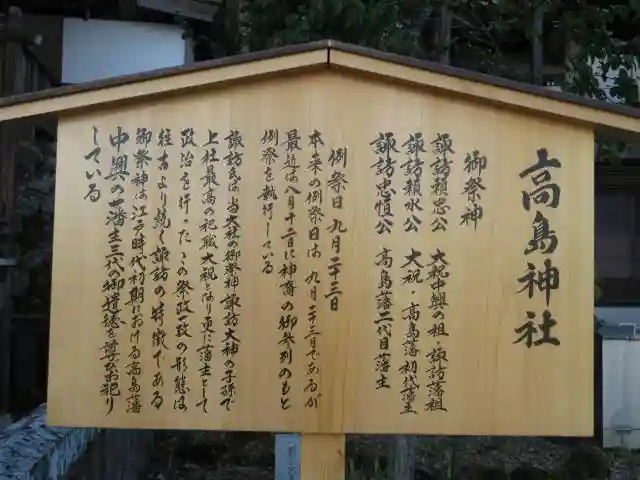 高島神社
御祭神
諏訪頼忠公 大祝中興の祖・諏訪藩祖
諏訪頼水公 大祝・高島藩初代藩主
諏訪忠恒公 高島藩二代目藩主
例祭日 九月二十三日
本来の例祭日は 九月二十三日であるが
最近は八月十二日に神斎の御参列のもと
例祭を執行している
諏訪氏は当大社の御祭神諏訪大神の子孫で
上社最高の祀職大祝となり更に藩主として
政治を行ったこの祭政政の形態は
往古より続く諏訪の特徴である
御祭神は江戸時代初期における高島藩
中興の藩主三代の御遺徳を尊びお祀り
している